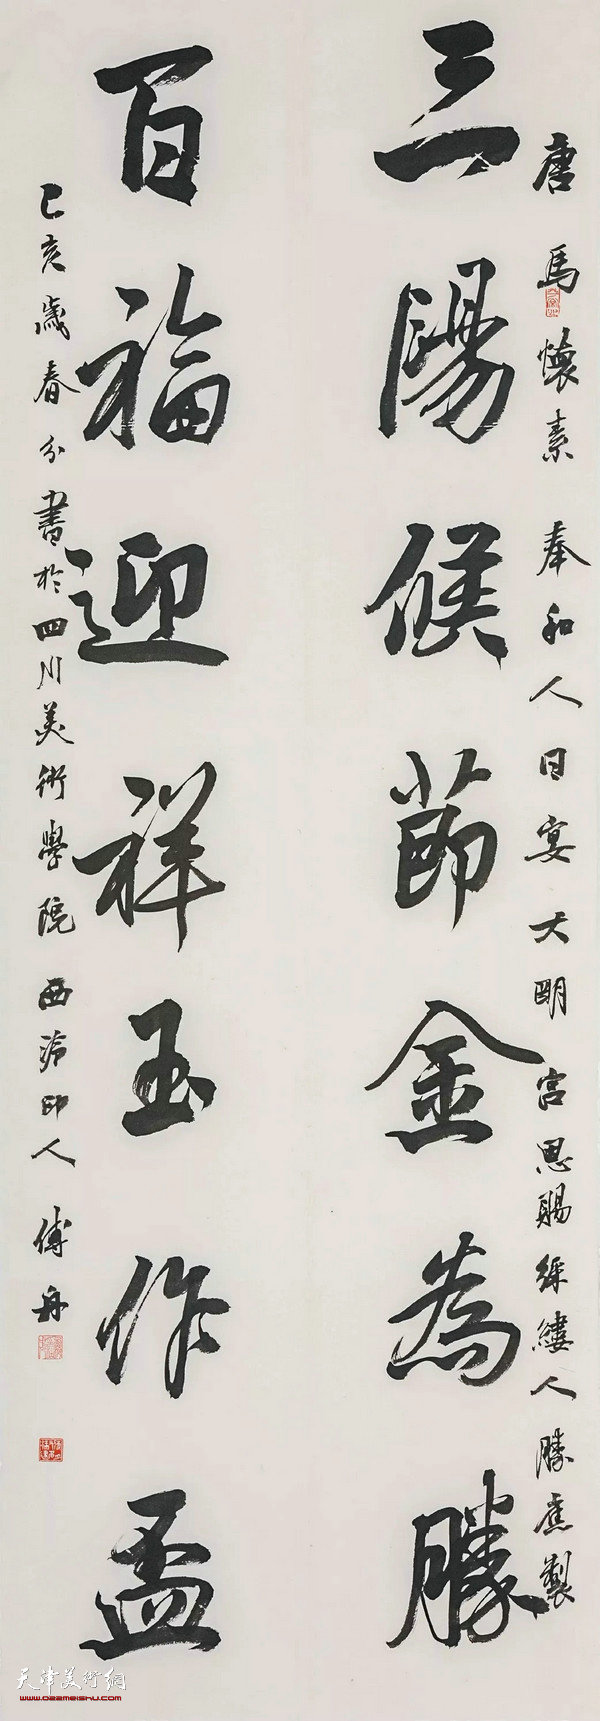 唐馬懷素奉和人日宴大明宮恩賜綵縷人勝應製
三陽候節金為勝
百福迎祥玉作盃
己亥歲春分書於四川美術學院西泠印人傅舟
天津美術網
www.022meishu.com